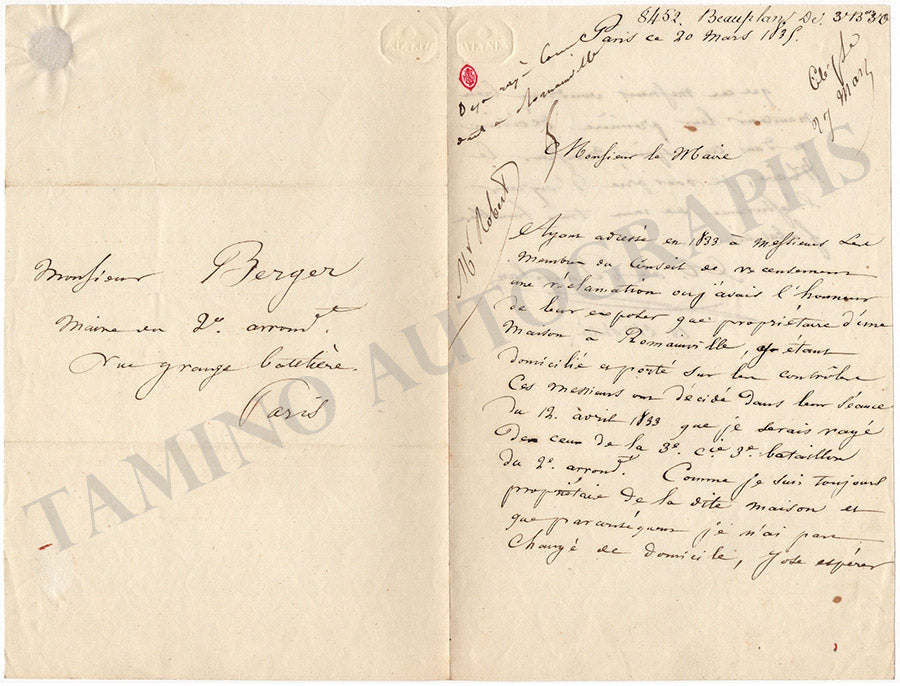 Monsieur Berger
Maire du 2e. arrondt.
rue grange batelière
Paris
8452. Beauplan De. 3e Bon 3e Cie
Paris ce 20 Mars 1835.
27 Mars
Mr Robert
Monsieur le Maire
Ayant adressé en 1833 à Messieurs Les
Membres du Conseil de recensement
une réclamation où j'avais l'honneur
de leur exposer que propriétaire d'une
maison à Romainville, y étant
domicilié et porté sur les contrôles
Ces messieurs ont décidé dans leur séance
du 12. avril 1833 que je serais rayé
De ceux de la 3e. cie 3e. bataillon
du 2e. arrondt. Comme je suis toujours
propriétaire de la dite maison et
que par conséquent je n'ai pas
changé de domicile, j'ose espérer
TAMINO AUTOGRAPHS